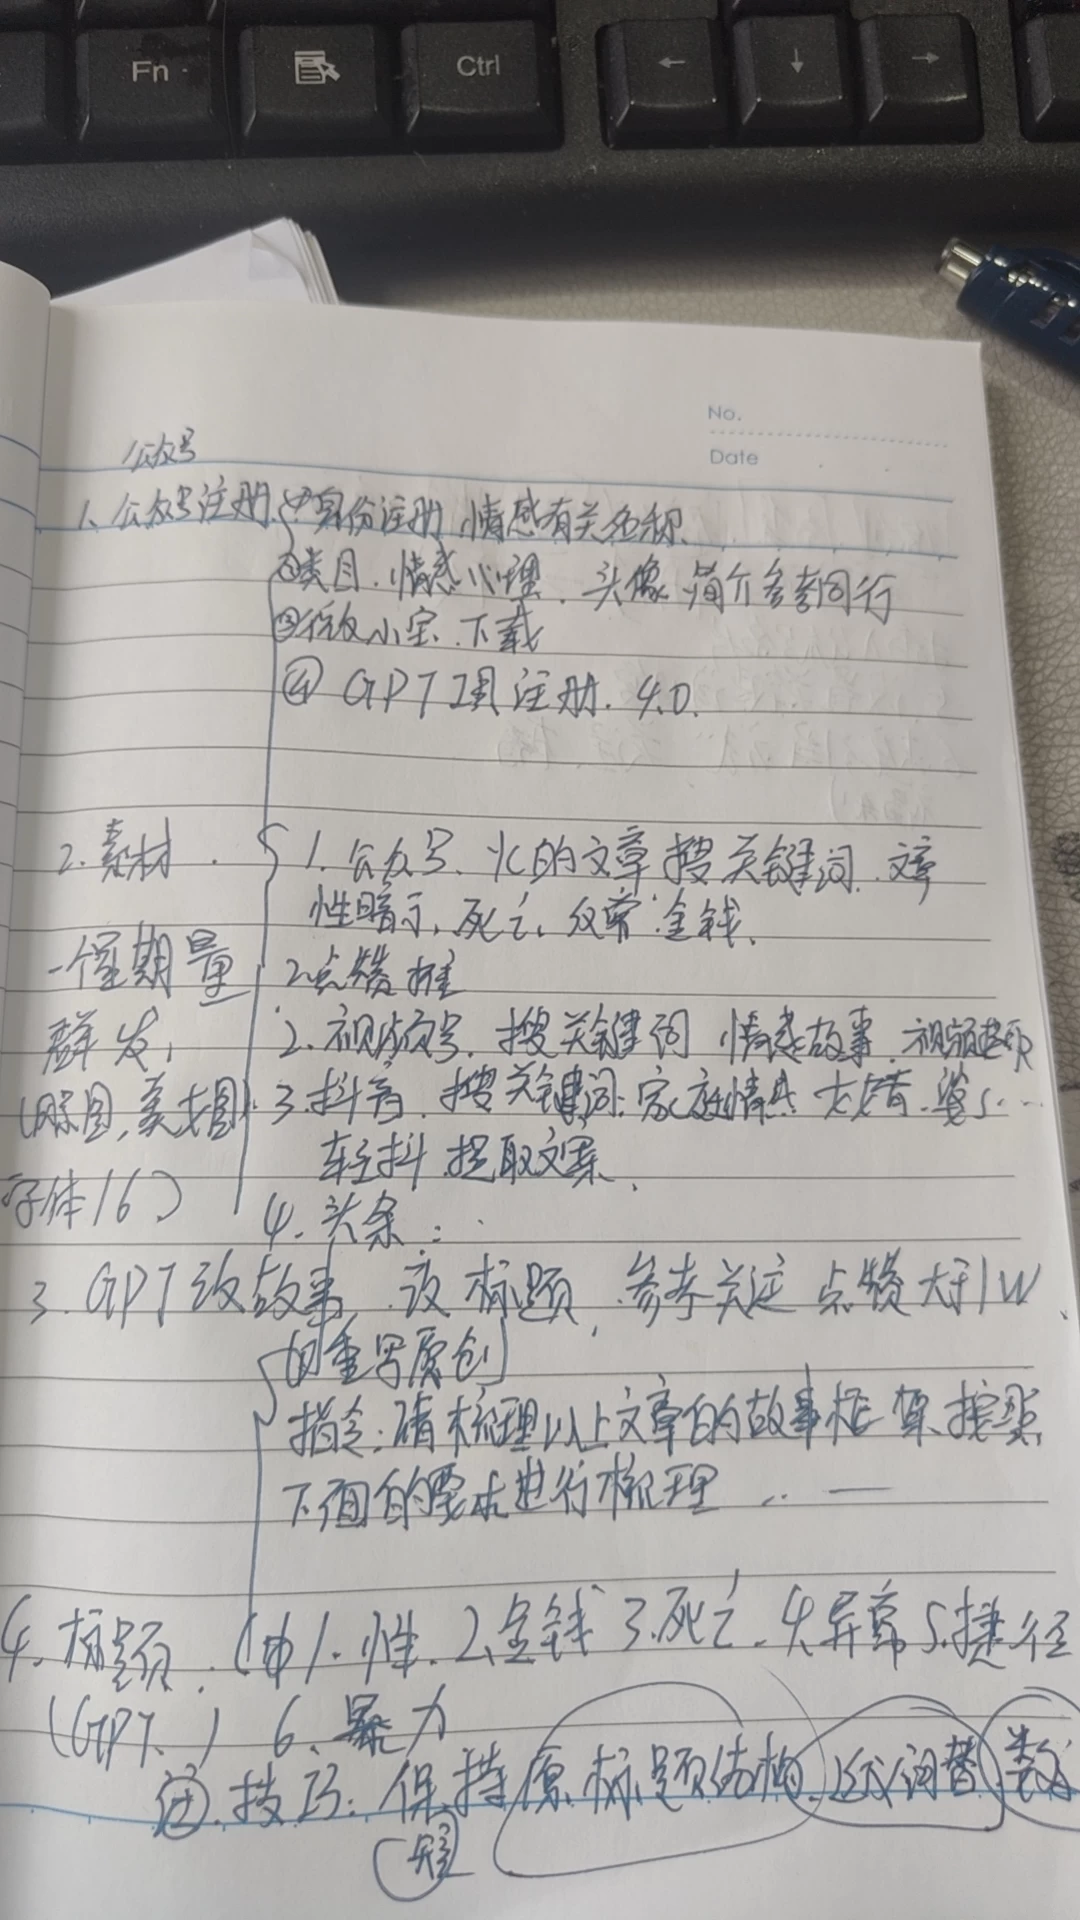 Fn
Ctrl
No.
Date
公众号
1. 公众号注册 ①身份注册,情感有关名称.
②类目.情感心理.头像 简介参考同行
③ 小宝.下载
④ GPT工具注册. 4.0.
2. 素材. 1. 公众号.火的文章搜关键词.文章
性暗示,死亡,反常,金钱.
一个星期量 2.点赞
群发, 2.视频号.搜关键词 情感故事.视频提取
(原图,美女图) 3.抖音.搜关键词:家庭情感 婆...
轻抖.提取文案.
字体16) 4.头条:
3. GPT改故事.改标题,参考关注 点赞大于1W.
重写原创
指令:请梳理以上文章的故事框架.按照
下面的要求进行梳理 .. —
4. 标题. ①1.性.2.金钱 3.死亡.4.异常 5.捷径
(GPT.) 6.暴力
②.技巧:保持原标题结构.近义词替 数